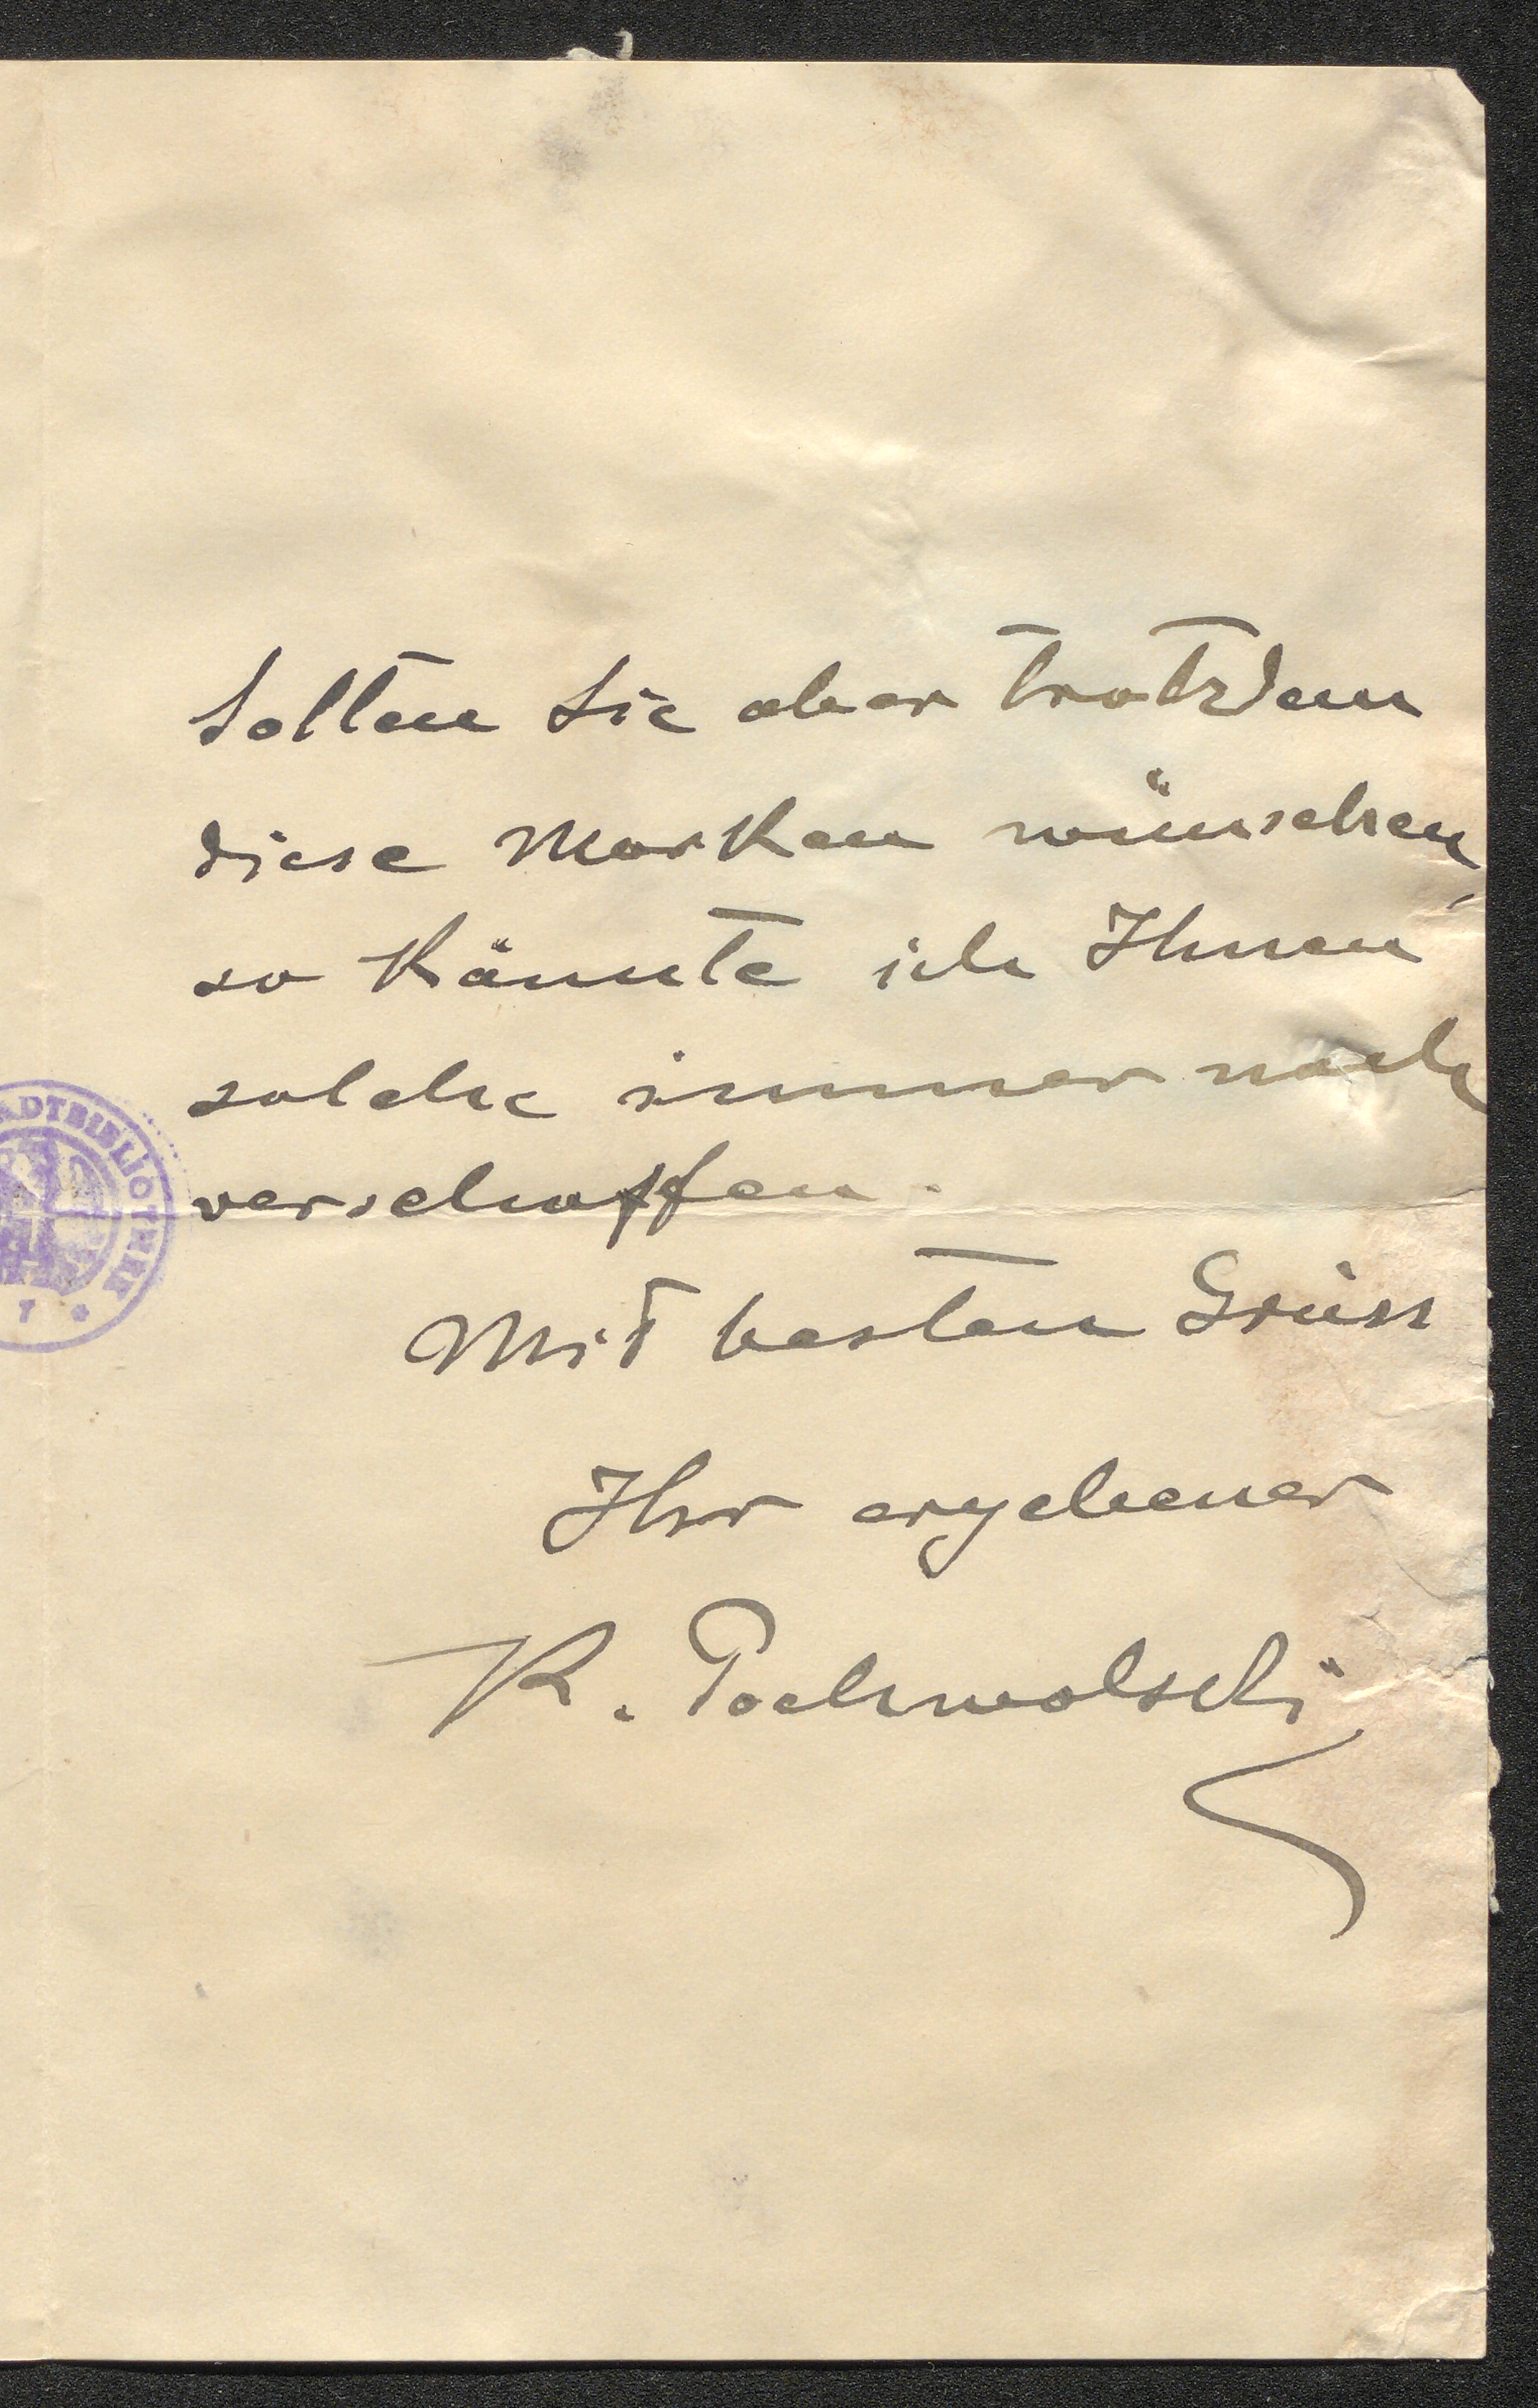 Sollten Sie aber trotzdem
diese Marken wünschen,
so könnte ich Ihnen
solche immer noch
verschaffen.
Mit besten Gruss
Ihr ergebener
K. Pochwalski
ADTBIBLIOTHEK